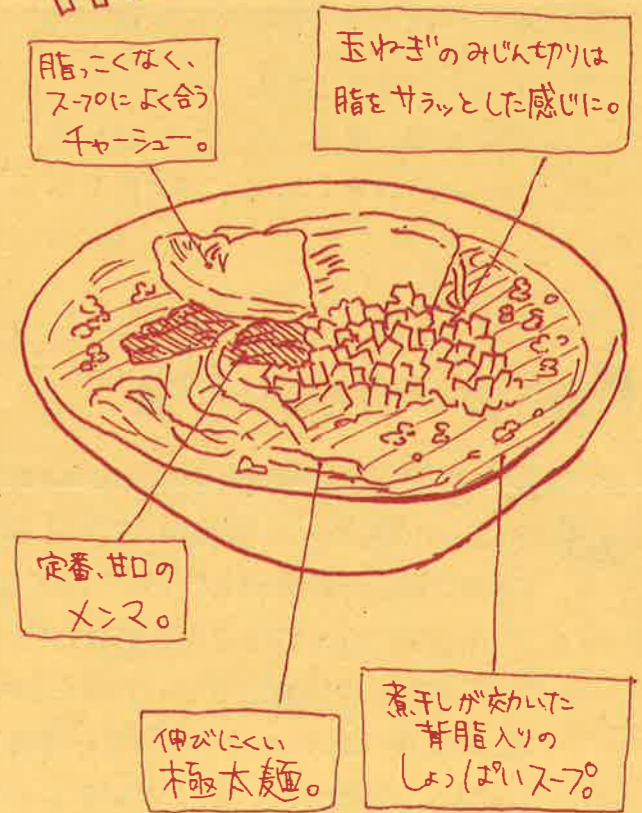 脂っこくなく、
スープによく合う
チャーシュー。
玉ねぎのみじん切りは
脂をサラッとした感じに。
定番、甘口の
メンマ。
伸びにくい
極太麺。
煮干しが効いた
背脂入りの
しょっぱいスープ。